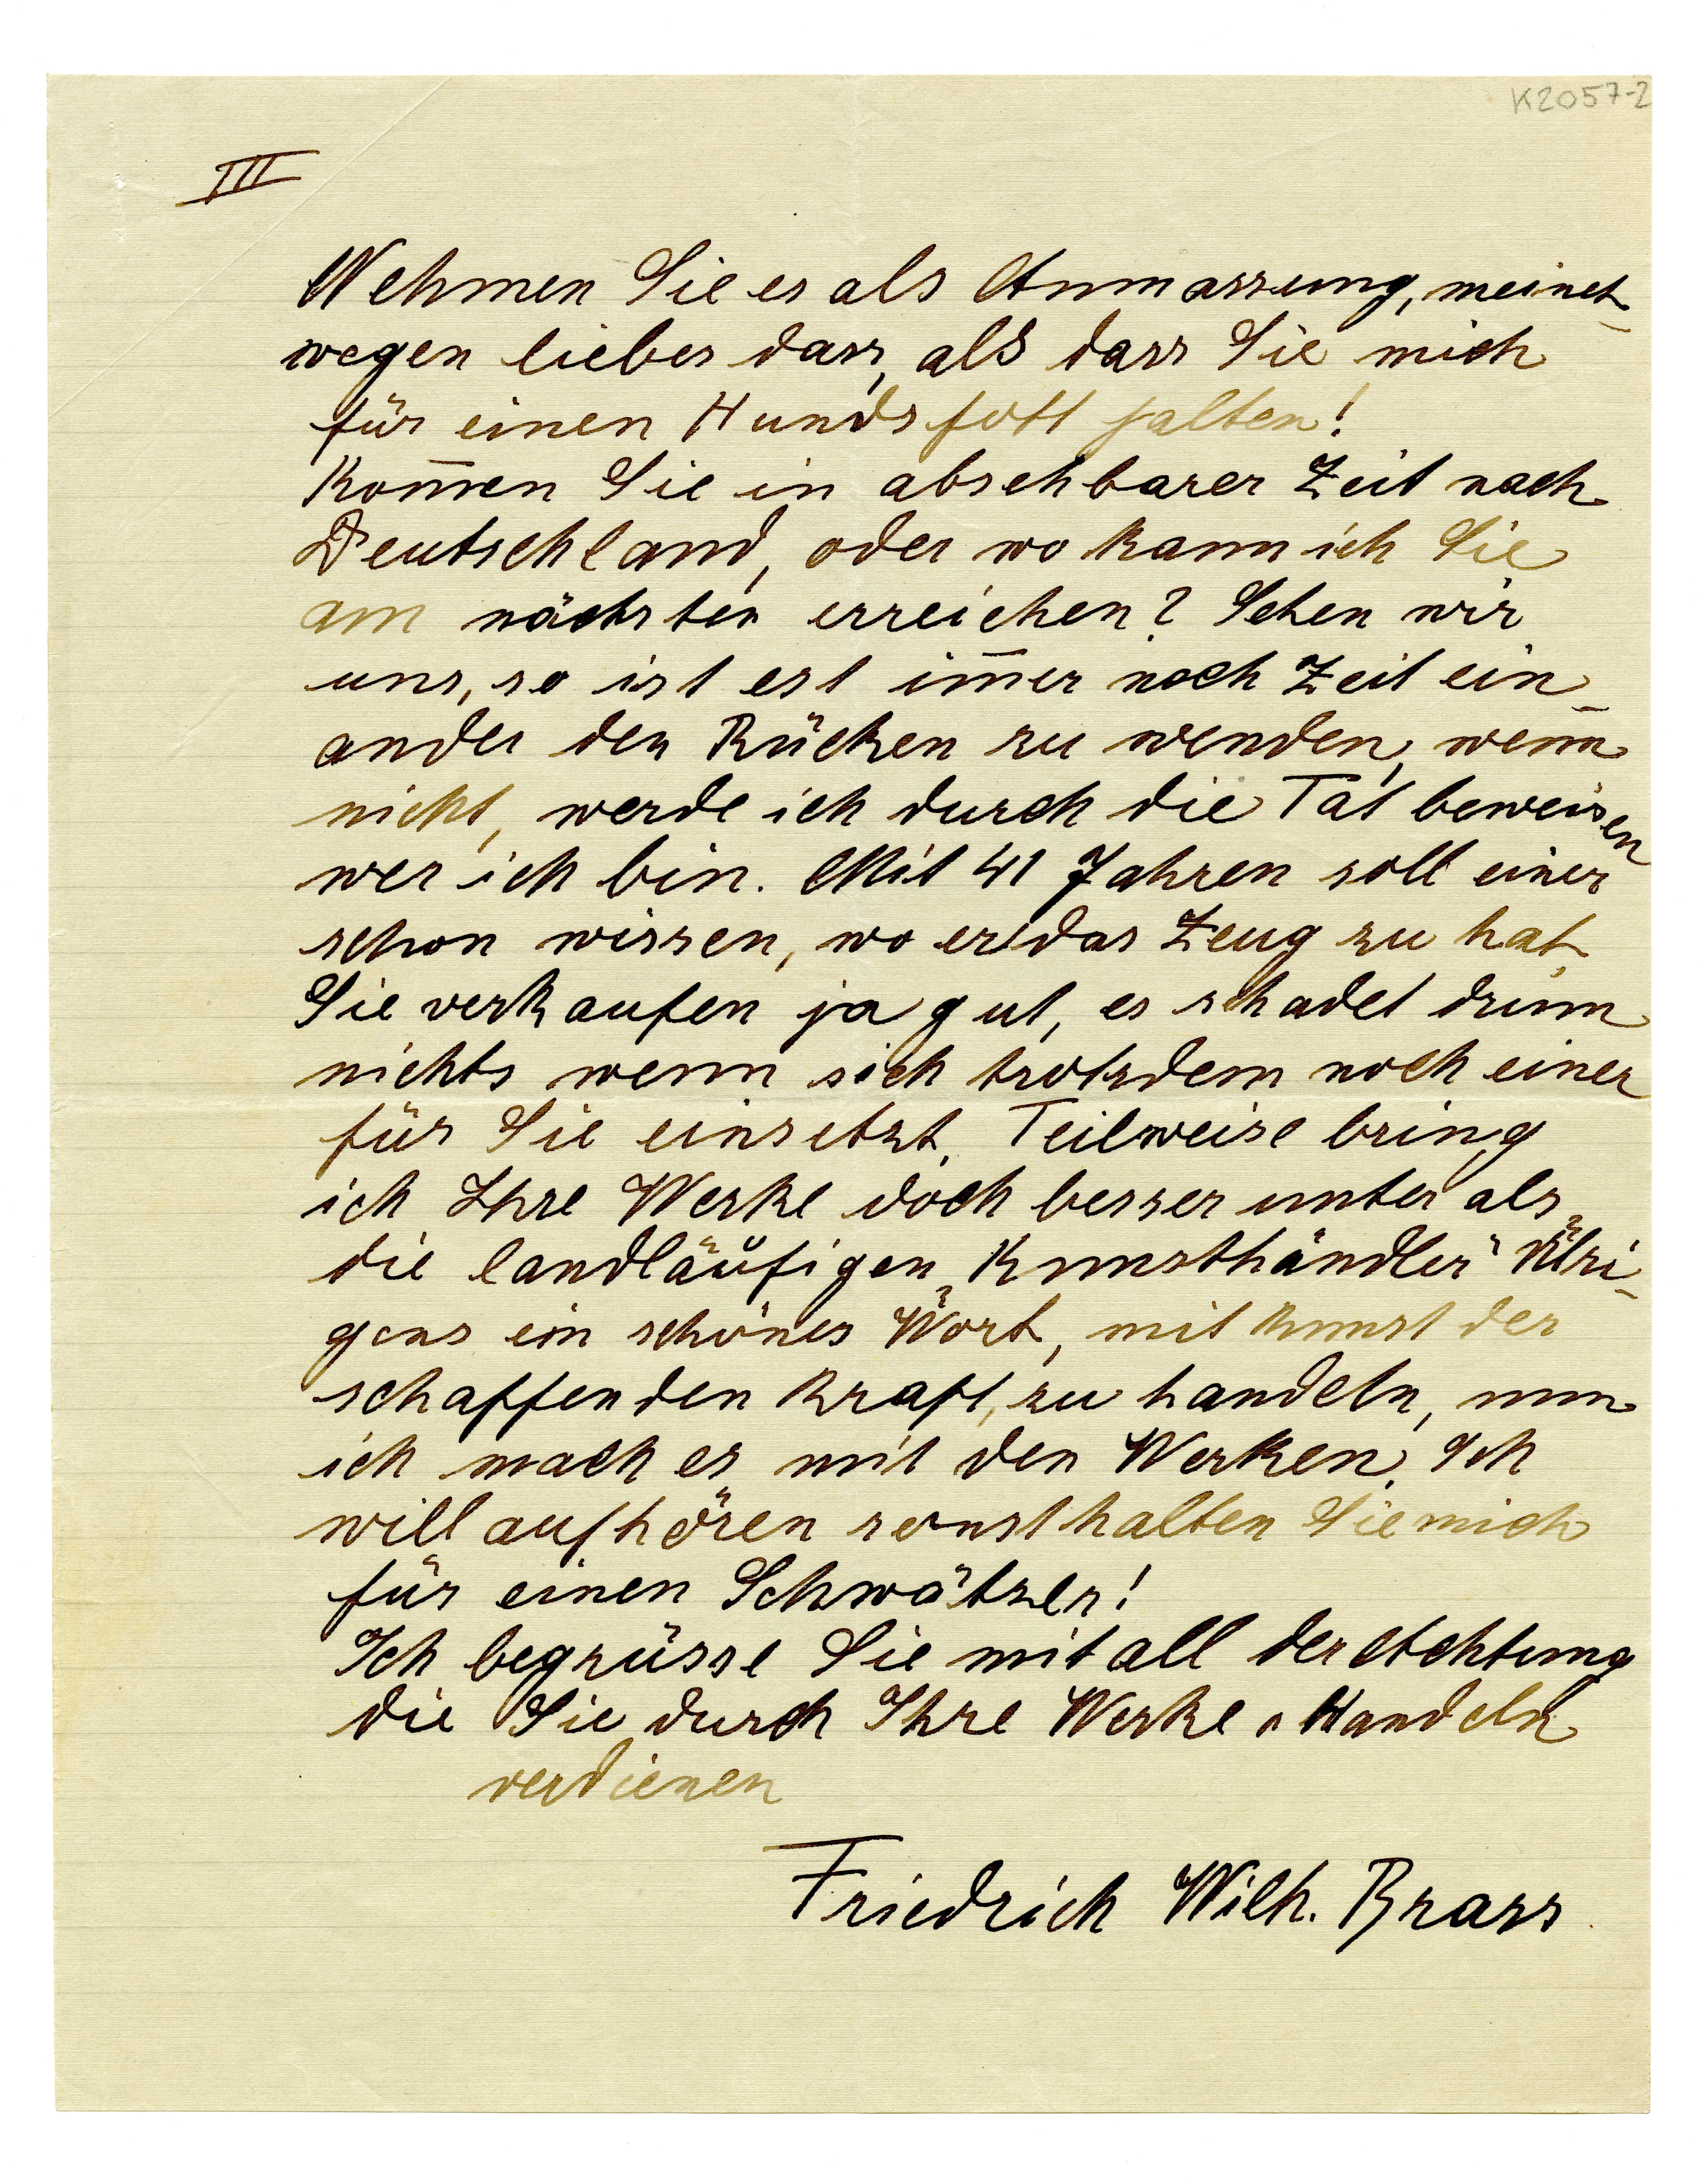 K2057-2
III
Nehmen Sie es als Anmassung, meinet-
wegen lieber dass, als dass Sie mich
für einen Hundsfott halten!
Kom̅en Sie in absehbarer Zeit nach
Deutschland, oder wo kann ich Sie
am nächsten erreichen? Sehen wir
uns, so ist est im̅er noch Zeit ein-
ander den Rücken zu wenden, wenn
nicht, werde ich durch die Tat beweisen
wer ich bin. Mit 41 Jahren soll einer
schon wissen, wo er das Zeug zu hat.
Sie verkaufen ja gut, es schadet drum
nichts wenn sich trotzdem noch einer
für Sie einsetzt. Teilweise bring
ich Ihre Werke doch besser unter als
die landläufigen „Kunsthändler" Übri-
gens ein schönes Wort, mit Kunst der
schaffenden Kraft, zu handeln, nun
ich mach es mit den Werken. Ich
will aufhören sonst halten Sie mich
für einen Schwätzer!
Ich begrüsse Sie mit all der Achtung
die Sie durch Ihre Werke u Handeln
verdienen
Friedrich Wilh. Brass